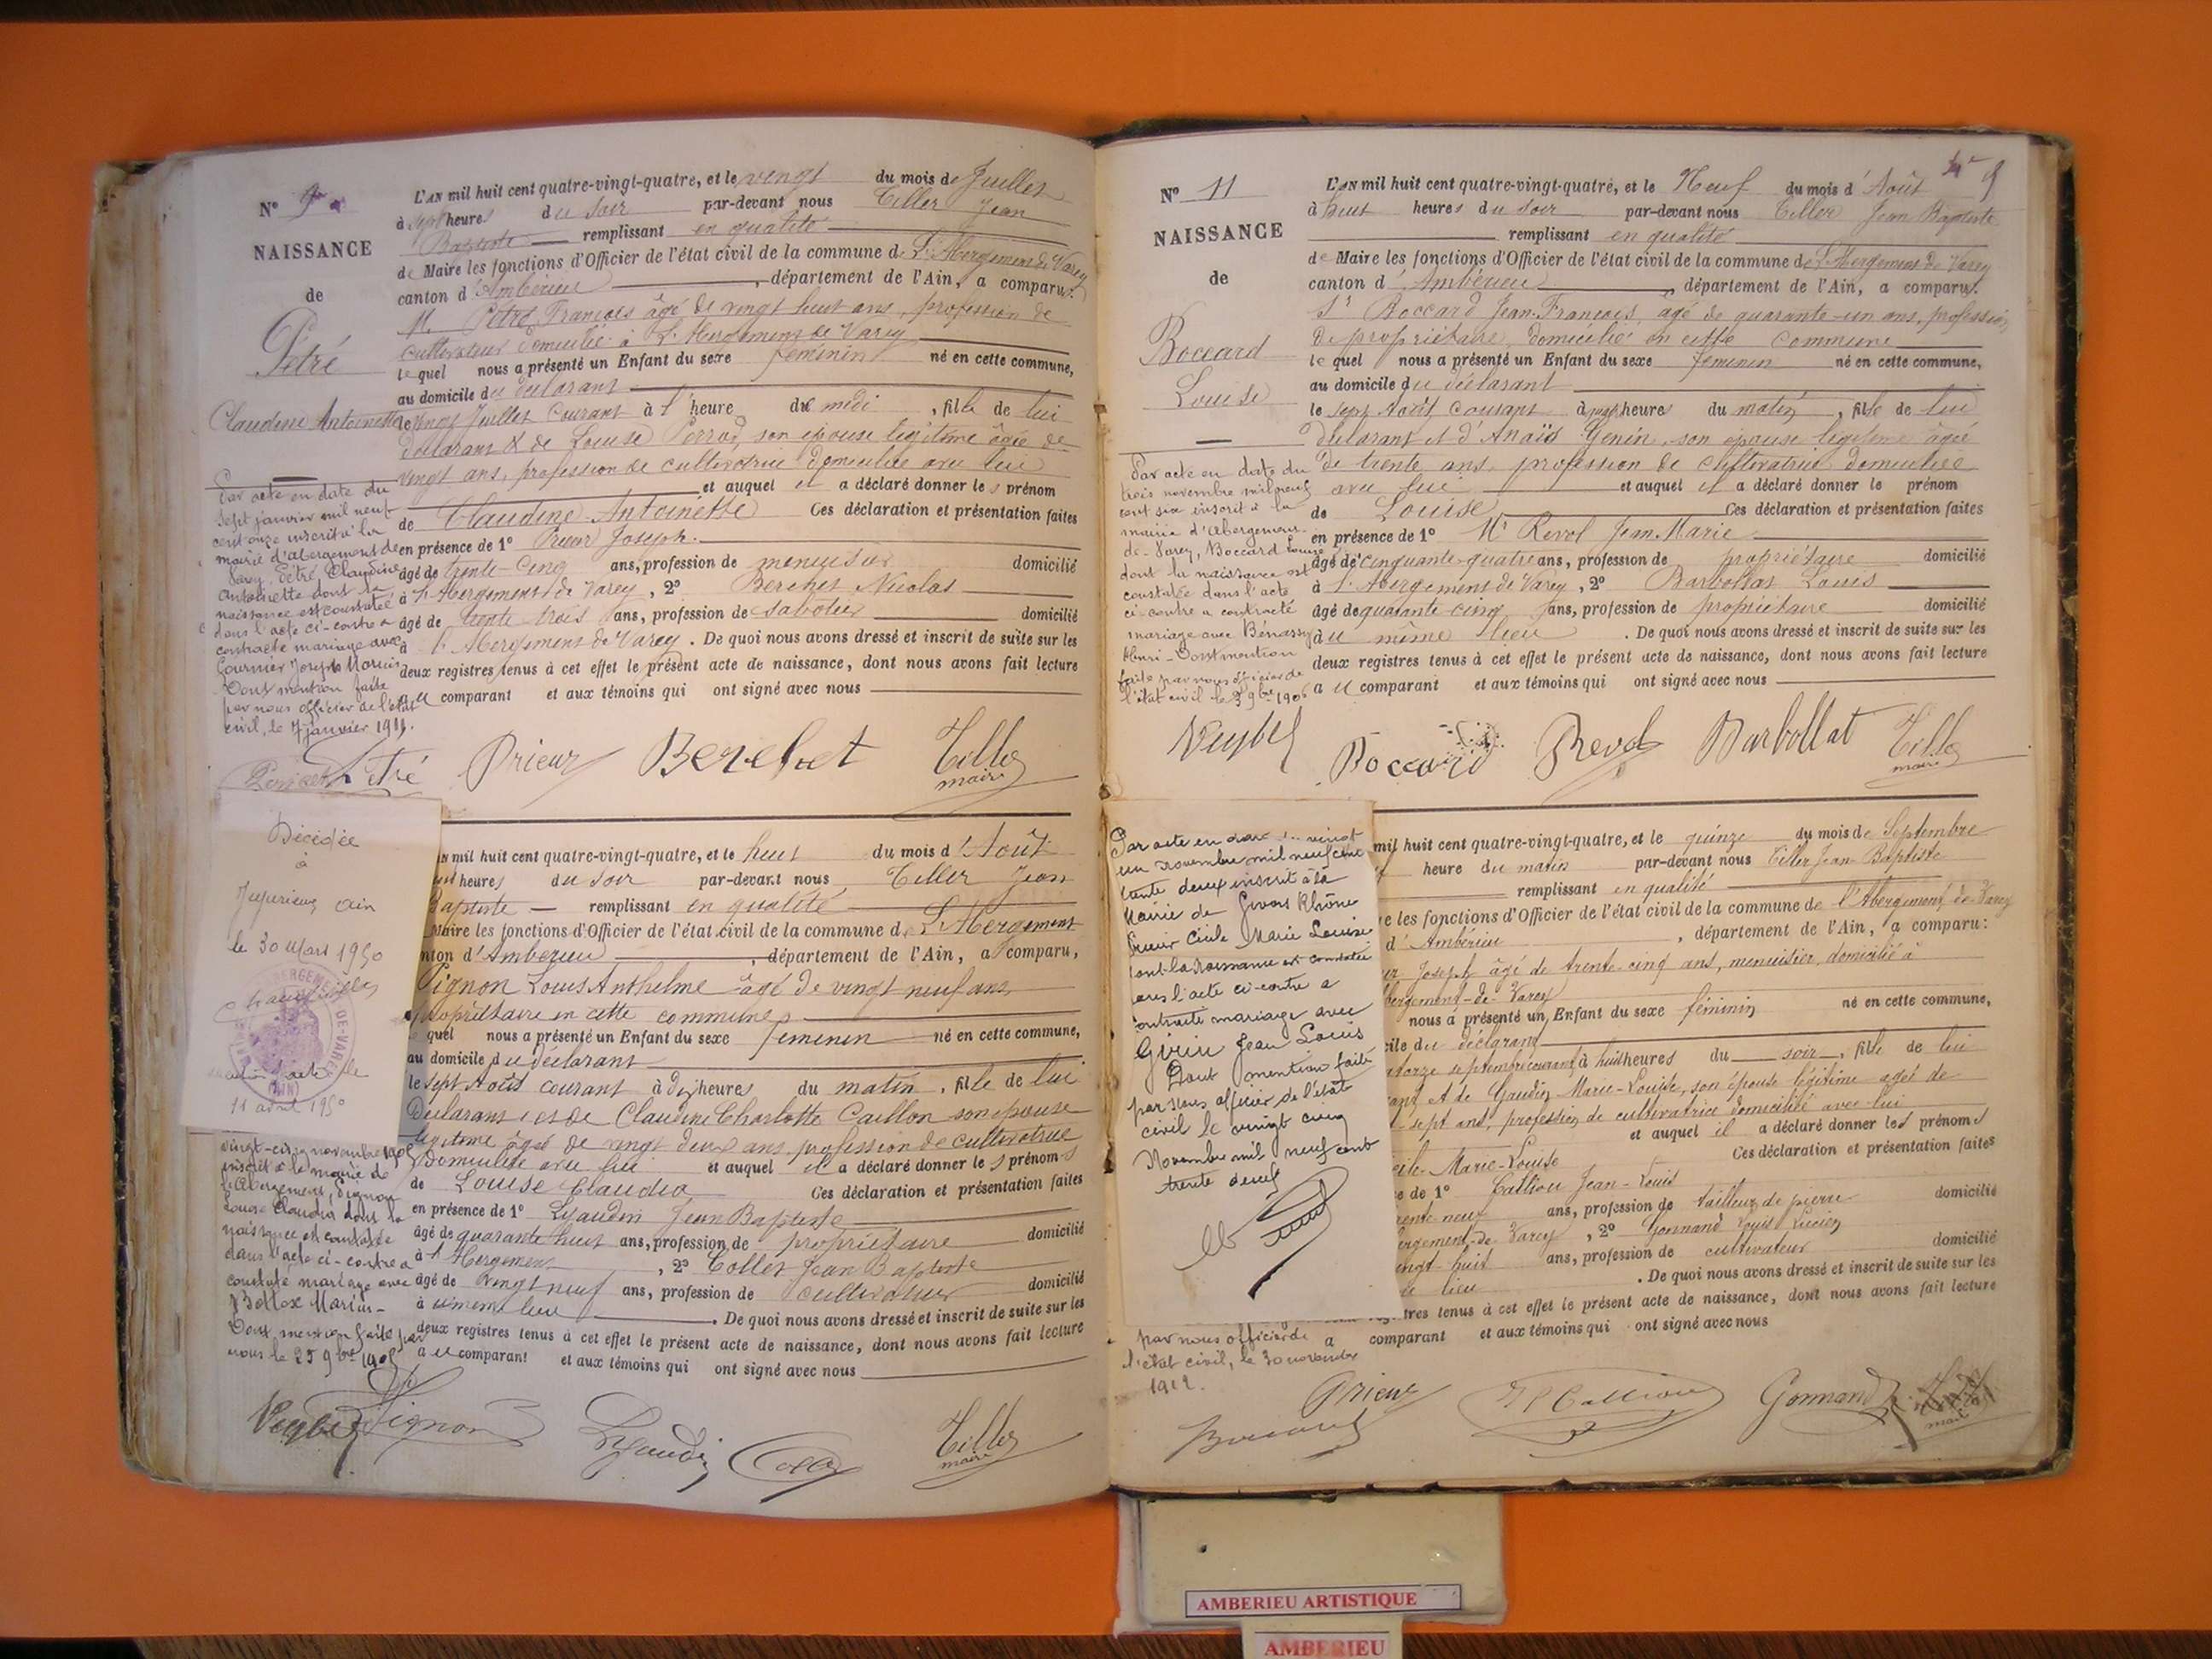 N° 9
NAISSANCE
de
Pétré
Claudine Antoinette
L'AN mil huit cent quatre-vingt-quatre, et le vingt du mois de Juillet
à sept heures du soir par-devant nous Tiller Jean
Baptiste remplissant en qualité
de Maire les fonctions d'Officier de l'état civil de la commune de L'Abergement de Varey
canton d'Ambérieu, département de l'Ain, a comparu:
M. Pétré François âgé de vingt huit ans, profession de
cultivateur domicilié à L'Abergement de Varey
lequel nous a présenté un Enfant du sexe féminin né en cette commune,
au domicile du déclarant
le vingt Juillet courant à 1 heure du midi, fille de lui
déclarant & de Louise Perrod, son épouse légitime âgée de
vingt ans, profession de cultivatrice domiciliée avec lui
et auquel il a déclaré donner les prénom
de Claudine Antoinette Ces déclaration et présentation faites
en présence de 1° Prieur Joseph
âgé de trente-cinq ans, profession de menuisier domicilié
à l'Abergement de Varey, 2° Berchet Nicolas
âgé de trente trois ans, profession de sabotier domicilié
à l'Abergement de Varey. De quoi nous avons dressé et inscrit de suite sur les
deux registres tenus à cet effet le présent acte de naissance, dont nous avons fait lecture
au comparant et aux témoins qui ont signé avec nous
Par acte en date du
sept janvier mil neuf
cent onze inscrit à la
mairie d'abergement de
Varey, Pétré Claudine
Antoinette dont la
naissance est constatée
dans l'acte ci-contre a
contracté mariage avec
Fournier Joseph Marius
Dont mention faite
par nous officier de l'état
civil, le 7 janvier 1911.
Pétré Prieur Berchet Tiller
maire
Décédée
à
Jujurieux Ain
le 30 Mars 1950
11 avril 1950
L'AN mil huit cent quatre-vingt-quatre, et le huit du mois d'Août
heures du soir par-devant nous Tiller Jean
Baptiste remplissant en qualité
Maire les fonctions d'Officier de l'état civil de la commune de L'Abergement
canton d'Ambérieu, département de l'Ain, a comparu,
Pignon Louis Anthelme âgé de vingt neuf ans,
propriétaire en cette commune
lequel nous a présenté un Enfant du sexe féminin né en cette commune,
au domicile du déclarant
le sept Août courant à dix heures du matin, fille de lui
déclarant, et de Claudine Charlotte Caillon son épouse
légitime âgée de vingt deux ans profession de cultivatrice
domiciliée avec lui et auquel il a déclaré donner les prénoms
de Louise Claudia Ces déclaration et présentation faites
en présence de 1° Lyaudin Jean Baptiste
âgé de quarante huit ans, profession de propriétaire domicilié
à l'Abergement, 2° Collet Jean Baptiste
âgé de vingt neuf ans, profession de cultivateur domicilié
à u même lieu. De quoi nous avons dressé et inscrit de suite sur les
deux registres tenus à cet effet le présent acte de naissance, dont nous avons fait lecture
au comparant et aux témoins qui ont signé avec nous
vingt-cinq novembre 1905
inscrit à la mairie de
l'Abergement, Pignon
Louise Claudia dont la
naissance est constatée
dans l'acte ci-contre a
contracté mariage avec
Bollex Marius
Dont mention faite par
nous le 25 9bre 1905
Pignon Lyaudin Collet Tiller
maire
N° 11
NAISSANCE
de
Boccard
Louise
L'AN mil huit cent quatre-vingt-quatre, et le Neuf du mois d'Août
à huit heures du soir par-devant nous Tiller Jean Baptiste
remplissant en qualité
de Maire les fonctions d'Officier de l'état civil de la commune de L'Abergement de Varey
canton d'Ambérieu, département de l'Ain, a comparu:
Sr Boccard Jean-François, âgé de quarante-un ans, profession
de propriétaire, domicilié en cette commune
lequel nous a présenté un Enfant du sexe féminin né en cette commune,
au domicile du déclarant
le sept Août courant à heures du matin, fille de lui
déclarant et d'Anaïs Genin, son épouse légitime âgée
de trente ans profession de cultivatrice domiciliée
avec lui et auquel il a déclaré donner le prénom
de Louise Ces déclaration et présentation faites
en présence de 1° Mr Revol Jean Marie
âgé de cinquante-quatre ans, profession de propriétaire domicilié
à l'Abergement de Varey, 2° Barbollat Louis
âgé de quarante cinq ans, profession de propriétaire domicilié
à u même lieu. De quoi nous avons dressé et inscrit de suite sur les
deux registres tenus à cet effet le présent acte de naissance, dont nous avons fait lecture
au comparant et aux témoins qui ont signé avec nous
Par acte en date du
trois novembre mil neuf
cent six inscrit à la
mairie d'Abergement-
de-Varey, Boccard Louise
dont la naissance est
constatée dans l'acte
ci-contre a contracté
mariage avec Bénassy
Henri - Dont mention
faite par nous officier de
l'état civil le 3 9bre 1906
Boccard Revol Barbollat Tiller
maire
Par acte en date du vingt
un novembre mil neuf cent
trente deux inscrit à la
Mairie de Givors Rhône
Prieur Cécile Marie Louise
dont la naissance est constatée
dans l'acte ci-contre a
contracté mariage avec
Girin Jean Louis
Dont mention faite
par nous officier de l'état
civil le vingt cinq
Novembre mil neuf cent
trente deux
mil huit cent quatre-vingt-quatre, et le quinze du mois de Septembre
heure du matin par-devant nous Tiller Jean-Baptiste
remplissant en qualité
de les fonctions d'Officier de l'état civil de la commune de l'Abergement de Varey
d'Ambérieu, département de l'Ain, a comparu:
Joseph âgé de trente-cinq ans, menuisier, domicilié à
Abergement-de-Varey
nous a présenté un Enfant du sexe féminin né en cette commune,
domicile du déclarant
quatorze septembre courant, à huit heures du soir, fille de lui
déclarant et de Gaudin Marie-Louise, son épouse légitime âgée de
sept ans, profession de cultivatrice domiciliée avec lui
et auquel il a déclaré donner les prénoms
Cécile-Marie-Louise Ces déclaration et présentation faites
de 1° Calliou Jean-Louis
trente neuf ans, profession de tailleur de pierre domicilié
Abergement-de-Varey, 2° Gonnand Louis Lucien
vingt huit ans, profession de cultivateur domicilié
lieu. De quoi nous avons dressé et inscrit de suite sur les
registres tenus à cet effet le présent acte de naissance, dont nous avons fait lecture
a comparant et aux témoins qui ont signé avec nous
par nous officier de
l'état civil, le 30 novembre
1912.
Prieur Calliou Gonnand
maire
AMBERIEU ARTISTIQUE
AMBERIEU